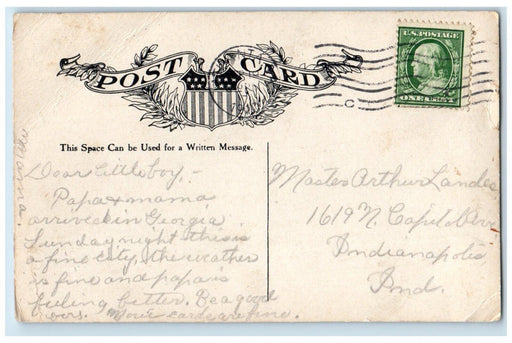 POST CARD
U.S. POSTAGE
ONE CENT
This Space Can be Used for a Written Message.
Dear little boy, -
Papa & mama
arrived in Georgia
Sunday night this is
a fine city, the weather
is fine and papa is
feeling better. Be a good
Your cards are fine.
Mama.
Master Arthur Landes
1619 N. Capitol Ave
Indianapolis
Ind.